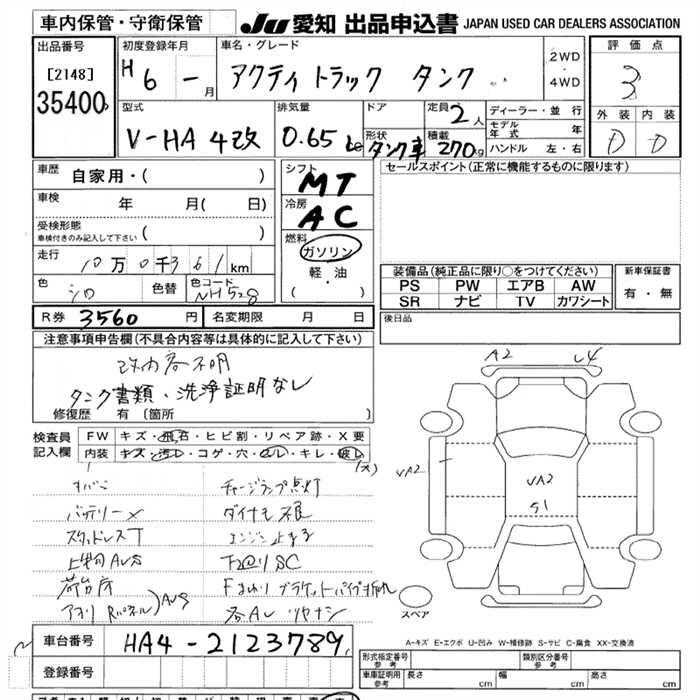 車内保管・守衛保管
JU 愛知 出品申込書 JAPAN USED CAR DEALERS ASSOCIATION
出品番号
[2148]
35400
初度登録年月
H 6 - 月
車名・グレード
アクティ トラック タンク
2WD
4WD
評価点
3
外装 内装
D D
型式
V-HA 4改
排気量
0.65
ドア
形状
タンク車
定員 2 人
積載 270 kg
ディーラー・並行
モデル年式 年
ハンドル 左・右
車歴
自家用・( )
車検
年 月( 日)
受検形態
車検付きのみ記入して下さい ( )
走行
10万0千361km
色
シロ
色替
色コード
NH528
シフト
MT
冷房
AC
燃料
ガソリン
軽・油
( )
セールスポイント(正常に機能するものに限ります)
装備品(純正品に限り○をつけてください)
PS PW エアB AW
SR ナビ TV カワシート
新車保証書
有・無
R券 3560 円
名変期限 月 日
後日品
注意事項申告欄(不具合内容等は具体的に記入して下さい)
改内容不明
タンク書類・洗浄証明なし
修復歴 有〔箇所
A2 U4
UA2
UA2
S1
検査員記入欄
FW キズ・飛石・ヒビ割・リペア跡・X要
内装 キズ・汚レ・コゲ・穴・スレ・キレ・破レ
チャージランプ点灯
バッテリーX
ダイナモ不良
スタッドレスT
エンジン止まる
上物AUS
荷台床
ブラケットパイプ折れ
アオリ Rパネル)AUS
スペア
A-キズ E-エクボ U-凹み W-補修跡 S-サビ C-腐食 XX-交換済
車台番号
HA4-2123789
登録番号
形式指定番号
参考
類別区分番号
参考
車庫証明用
参考
長さ cm
幅 cm
高さ cm